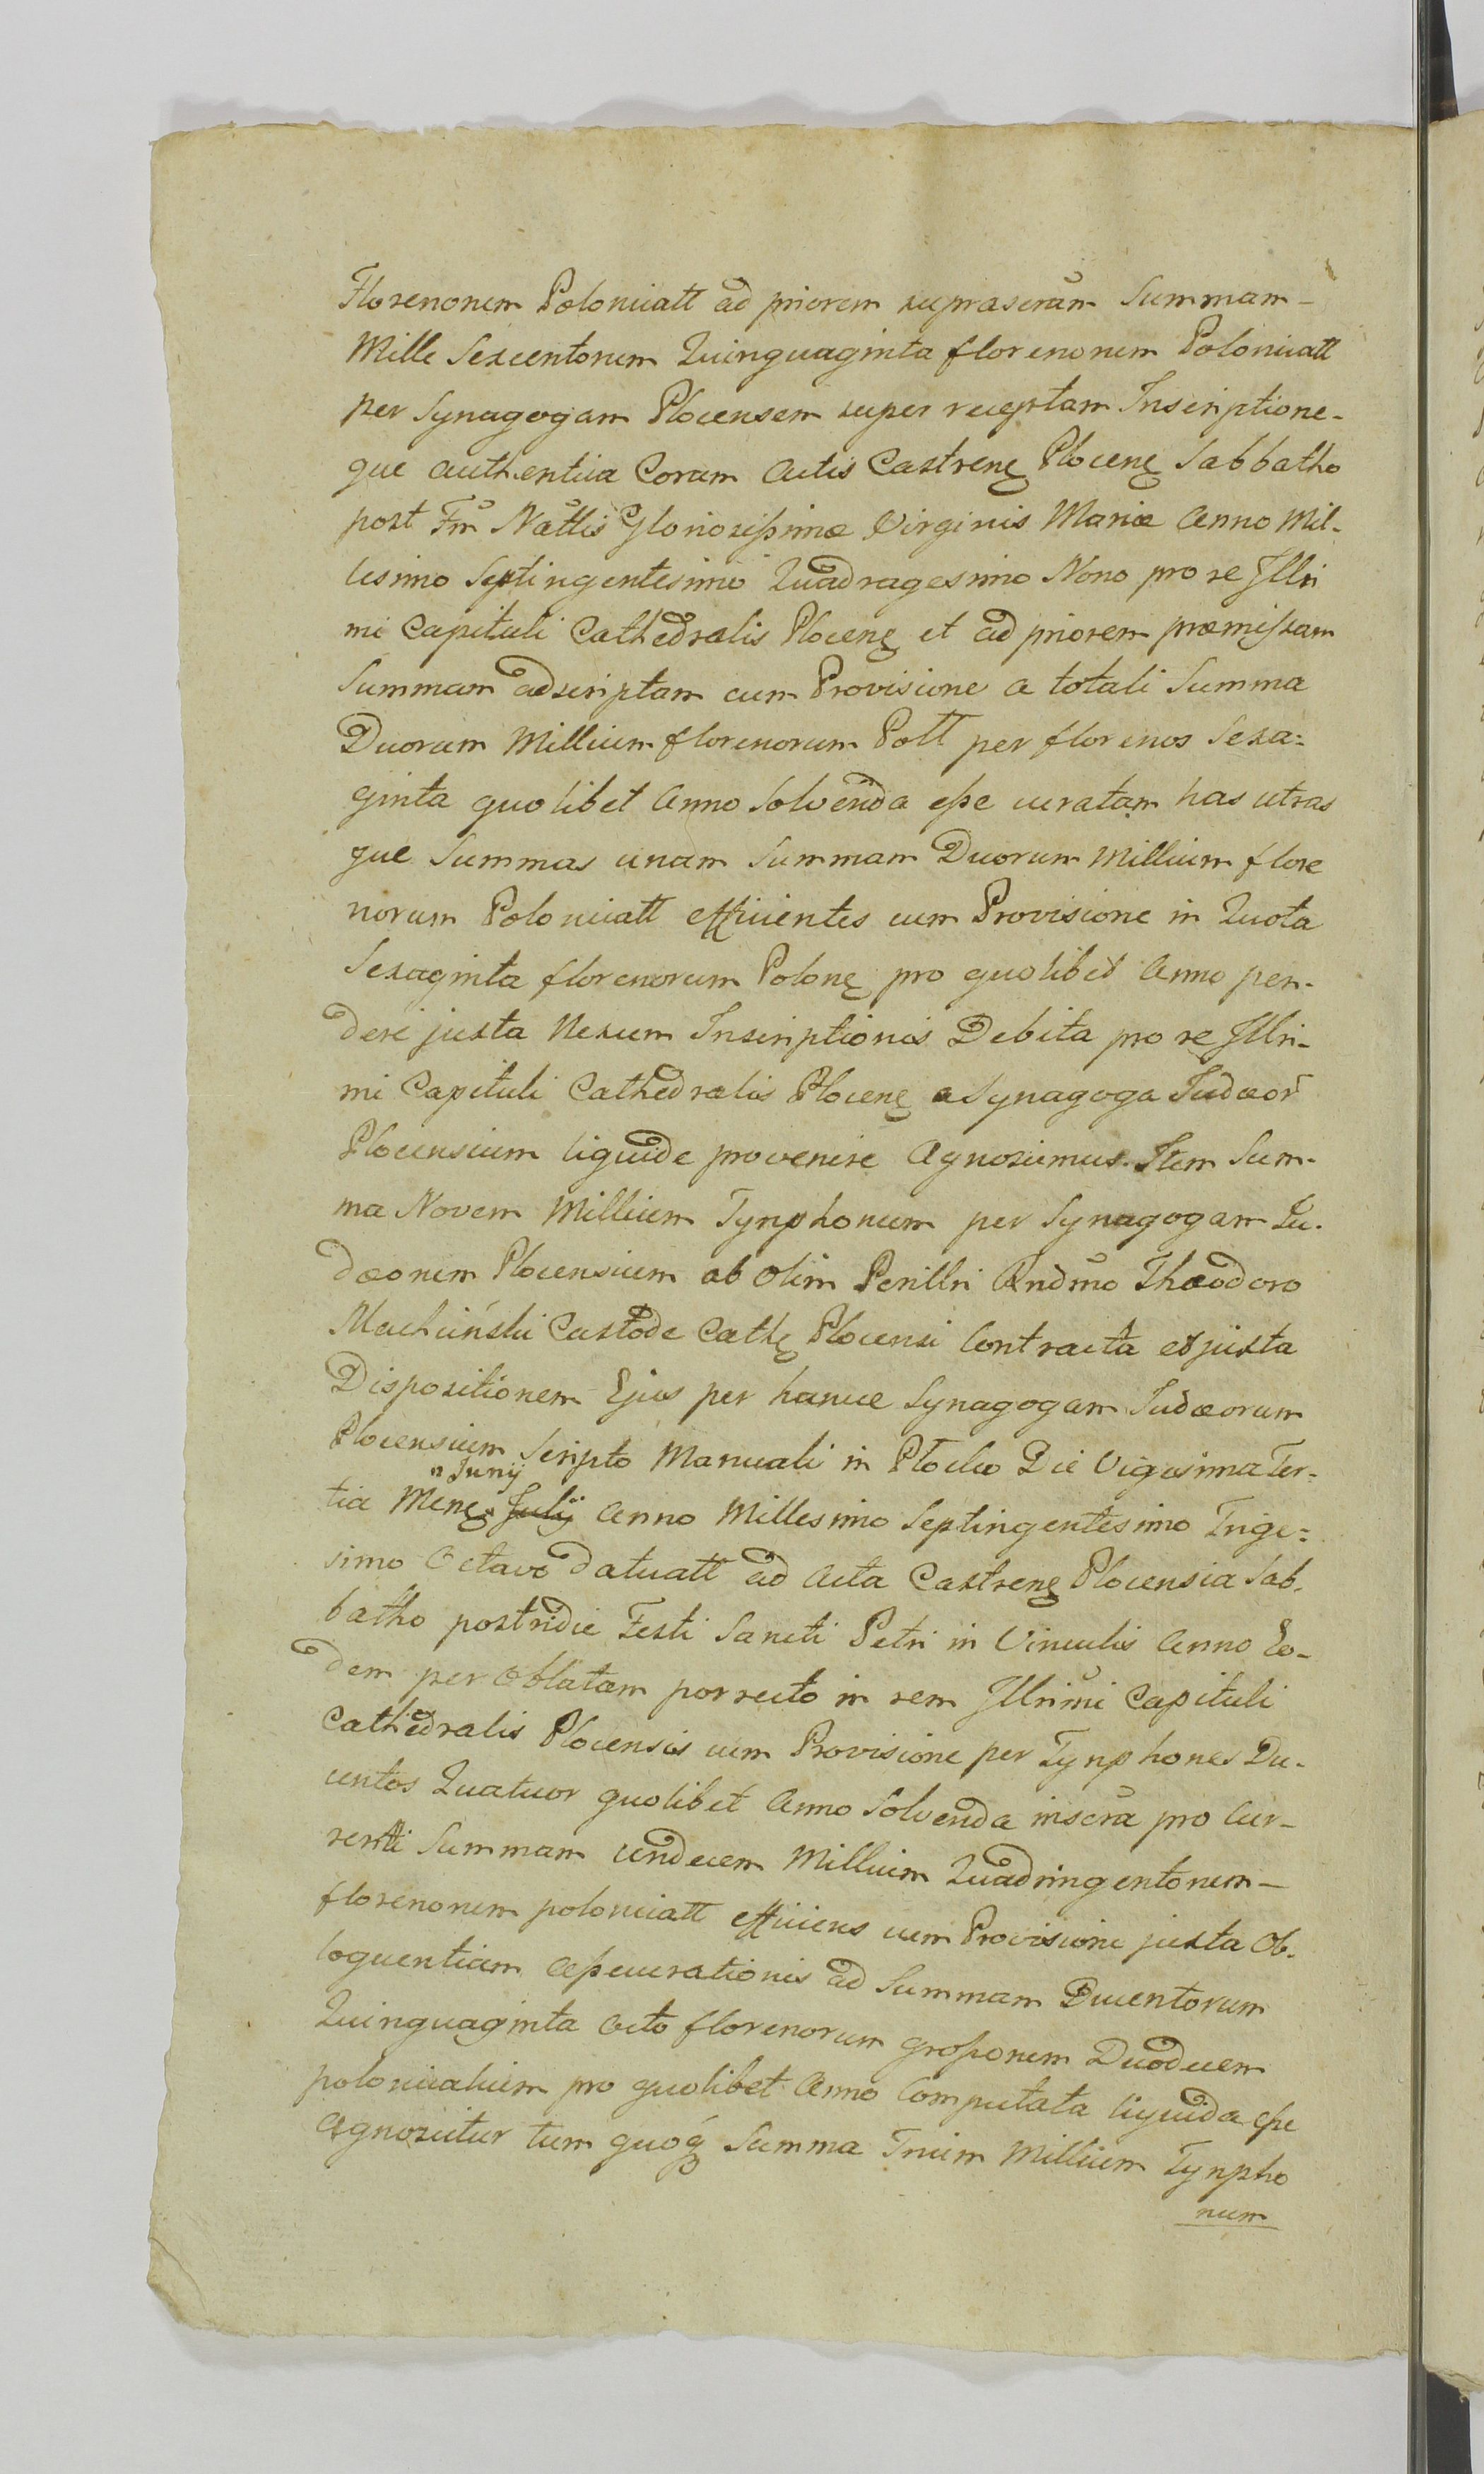 Florenorum Polonicatt ad priorem suprascram Summam –
Mille Sexcentorum Quinquaginta florenorum Polonicatt
per Synagogam Plocensem super receptam Inscriptione-
que authentica Coram Actis Castrenę Plocenę Sabbatho
post Fm Nattis Gloriosissimæ Virginis Mariæ Anno Mil-
lesimo Septingentesimo Quadragesimo Nono pro re Illri
mi Capituli Cathedralis Plocenę et ad priorem præmissam
Summam adscriptam cum Provisione a totali Summa
Duorum Millium florenorum Poll per florenos Sexa=
ginta quolibet Anno Solvenda esse curatam has utras
que Summas unam Summam Duorum Millium flore
norum Polonicatt efficientes cum Provisione in Quota
Sexaginta florenorum Polonę pro quolibet Anno pen-
deri juxta Nexum Inscriptionis Debita pro re Illri-
mi Capituli Cathedralis Plocenę a Synagoga Judæor
Plocensium liquide provenire Agnoscimus. Item Sum-
ma Novem Millium Tynphonum per Synagogam Ju-
dæorum Plocensium ab Olim Perillri Rndmo Theodoro
Machciński Custode Cathę Plocensi Contracta et juxta
Dispositionem Ejus per hancce Synagogam Judæorum
Plocensium Scripto Manuali in Płocko Die Vigesima Ter-
" Junij
tia Menę " Julij Anno Millesimo Septingentesimo Trige=
simo Octavo datuatt ad Acta Castrenę Plocensia Sab-
batho postridie Festi Sancti Petri in Vinculis Anno Eo-
dem per Oblatam porrecto in rem Illrimi Capituli
Cathedralis Plocensis cum Provisione per Tynphones Du-
centos Quatuor quolibet Anno Solvenda inscra pro Cur-
renti Summam undecem Millium Quadringentorum –
florenorum polonicatt efficiens cum Provisione juxta Ob-
loquentiam Assecurationis ad Summam Ducentorum
Quinquaginta Octo florenorum grossorum Duodecem
polonicalium pro quolibet Anno Computata liquida esse
Agnoscitur tum quoq Summa Trium Millium Tynpho
num